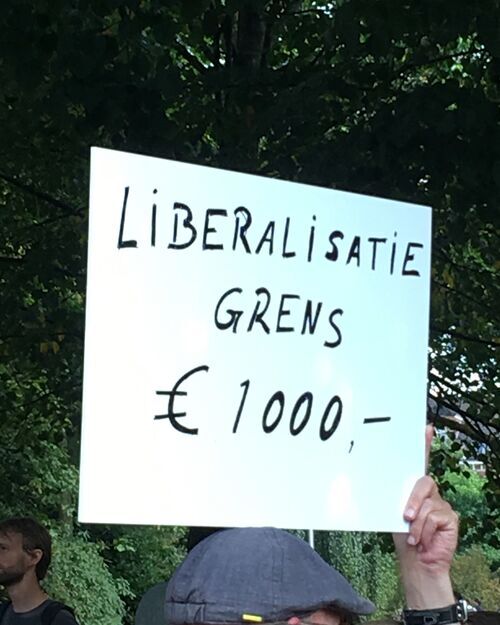 LIBERALISATIE
GRENS
€ 1000,-